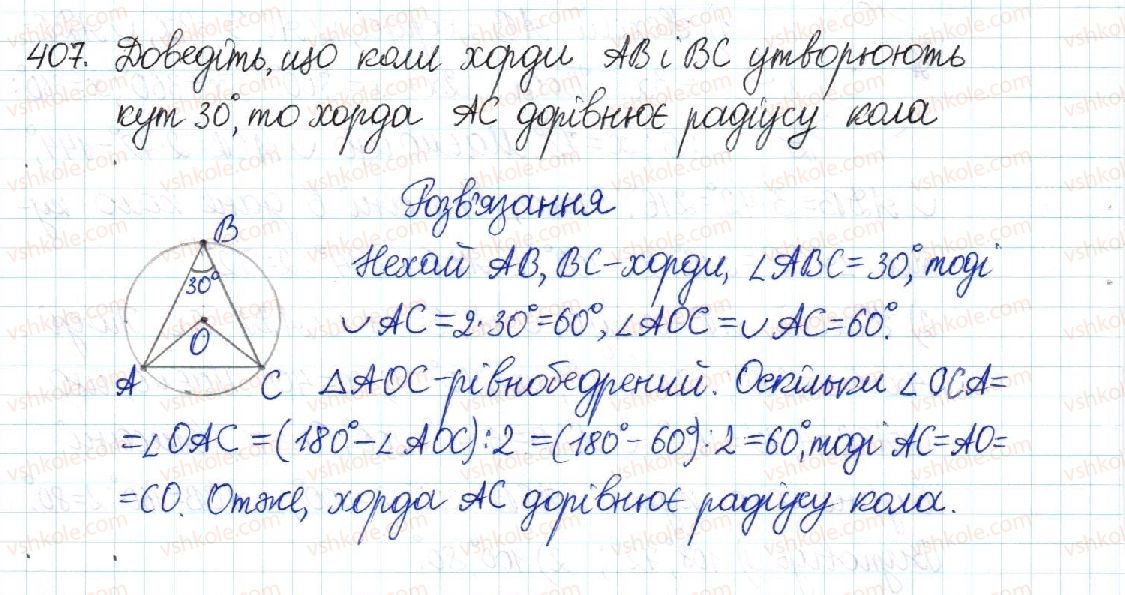 407. Доведіть, що коли хорди AB і BC утворюють
кут 30°, то хорда AC дорівнює радіусу кола
Розв'язання
B
30°
O
A
C
Нехай AB, BC-хорди, ∠ABC=30°, тоді
∪AC=2·30°=60°, ∠AOC=∪AC=60°.
△AOC-рівнобедрений. Оскільки ∠OCA=
=∠OAC=(180°-∠AOC):2=(180°-60°):2=60°, тоді AC=AO=
=CO. Отже, хорда AC дорівнює радіусу кола.
vshkole.com